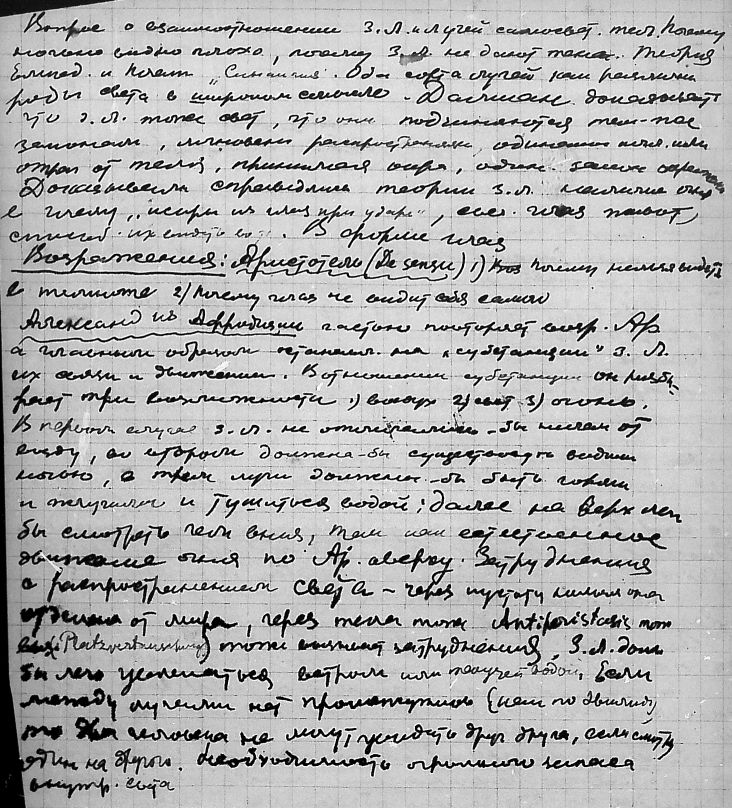 Вопрос о взаимоотношении З.Л. и лучей самосвет. тел. Почему
ночью видно плохо, почему З.Л. не дают тени. Теория
Емпед. и Плат. „Синавгия“. Оба сорта лучей как различн.
роды света в широком смысле.
что З.Л. тоже свет, что они подчиняются тем же
законам, мгновенн. распространен., одинаков.
отраж от тела, одинак. закон отражен.
Доказывали справедлив. теории З.Л. наличие огня
в глазу, „искры из глаз при ударе“, глаз
В форме глаз
Возражения: Аристотель (De sensu) 1) почему нельзя видеть
в темноте 2) почему глаз не видит себя самого
Александ из Афродизии частью повторяет возр. Ар
а главным образом останавл. на „субстанции“ З.Л.
их связи и движении. В отношении субстанции он разби-
рает три возможности 1) воздух 2) свет 3) огонь.
В первом случае З.Л. не отличались-бы ничем от
во втором должна-бы существовать видим
ночью, в трет лучи должны-бы быть
и тушиться водой; далее на верх
бы смотреть чем вниз, так как естественное
движение огня по Ар. кверху. Затруднения
с распространением света – через пустоту
отделена от мира, через тела тоже Antiperistasis тоже
тоже вызывает затруднения, З.Л. долж
бы легко увлекаться ветром или текучей водой. Если
между лучами нет промежутков (как по Эвклиду)
то два человека не могут увидеть друг друга, если смотр
один на другого. Необходимость огромного запаса
внутр. света